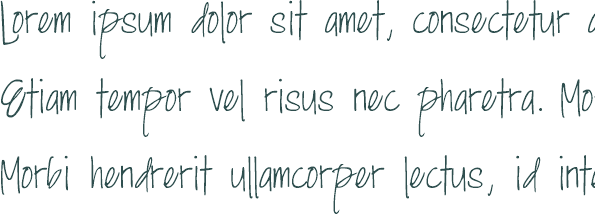 Lorem ipsum dolor sit amet, consectetur
Etiam tempor vel risus nec pharetra. Mo
Morbi hendrerit ullamcorper lectus, id inte